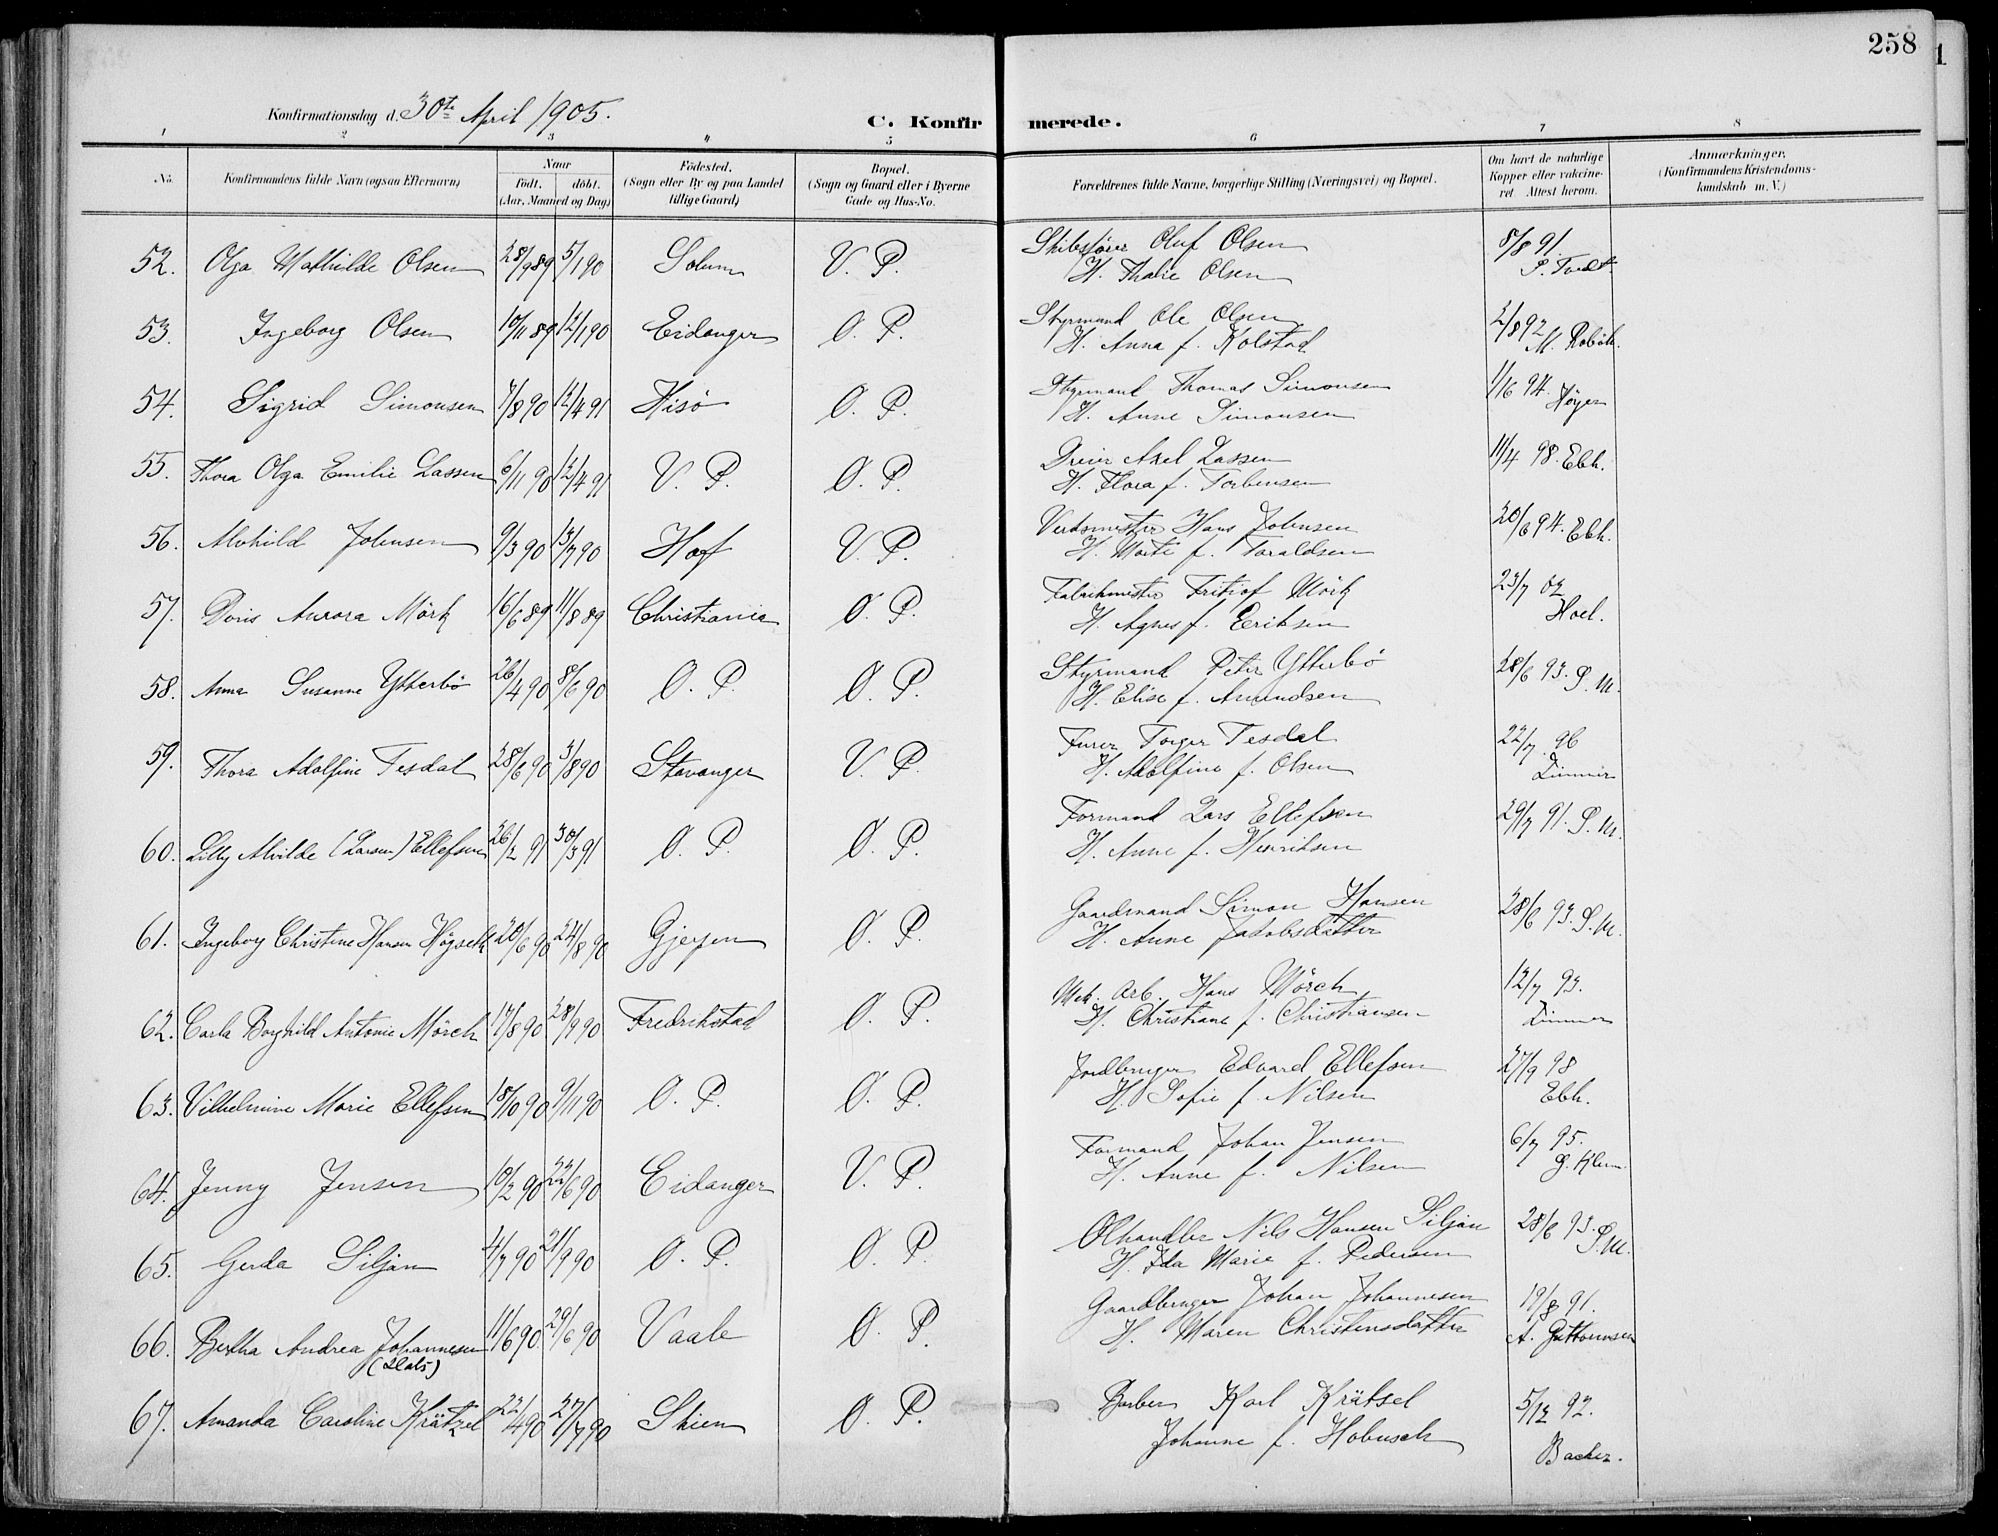 258
Konfirmationsdag d. 30te April 1905.
C. Konfirmerede.
1 2 3 4 5 6 7 8
No.
Konfirmandens fulde Navn (ogsaa Efternavn)
Naar
födt. döbt.
(Aar, Maaned og Dag)
Födested.
(Sogn eller By og paa Landet
tillige Gaard)
Bopæl.
(Sogn og Gaard eller i Byerne
Gade og Hus-No.
Forældrenes fulde Navne, borgerlige Stilling (Næringsvei) og Bopæl.
Om havt de naturlige
Kopper eller vakcine-
ret Attest herom.
Anmærkninger.
(Konfirmandens Kristendoms-
kundskab m. V.)
52. Olga Mathilde Olsen 28/9 89 5/1 90 Solum V. P. Skibsfører Oluf Olsen 8/8 91.
H. Thalie Olsen P. Tvedt
53. Ingeborg Olsen 10/11 89 12/1 90 Eidanger Ø. P. Styrmand Ole Olsen 2/8 92
H. Anna f. Kolstad M. Robøle.
54. Sigrid Simonsen 7/8 90 12/4 91 Hisö Ø. P. Styrmand Thomas Simonsen 1/16 94. Höyer
H. Anne Simonsen
55. Thora Olga Emilie Lassen 6/11 90 12/4 91 V. P. Ø. P. Dreier Axel Lassen 11/4 98. Ebh.
H. Flora f. Torbensen
56. Alvhild Johnsen 9/3 90 13/7 90 Hof V. P. Verksmester Hans Johnsen 20/6 94. Ebh.
H. Marte f. Taraldsen
57. Doris Aurora Mörk 16/6 89 11/8 89 Christiania Ø. P. Fabrikmester Fritiof Mörk 23/7 02
H. Agnes f. Eriksen Hoel.
58. Anna Susanne Ytterbö 26/4 90 8/6 90 Ø. P. Ø. P. Styrmand Peter Ytterbö 28/6 93. S. M.
H. Elise f. Amundsen
59. Thora Adolfine Tesdal 28/6 90 3/8 90 Stavanger V. P. Furer Torger Tesdal 22/7 96
H. Adolfine f. Olsen Zimmer
60. Lilly Alvilde (Larsen) Ellefsen 26/2 91 30/3 91 Ø. P. Ø. P. Formand Lars Ellefsen 29/7 91. S. M.
H. Anne f. Henriksen
61. Ingeborg Christine Hansen Högseth 20/6 90 24/8 90 Gjerpen Ø. P. Gaardmand Simon Hansen 28/6 93. S. M.
H. Anne Jakobsdatter
62. Carla Borghild Antonie Mörch 17/8 90 28/9 90 Fredrikstad Ø. P. Mek. Arb. Hans Mörch 12/7 93.
H. Christiane f. Christiansen Zimmer
63. Vilhelmine Marie Ellefsen 18/10 90 9/11 90 Ø. P. Ø. P. Jordbruger Edvard Ellefsen 27/9 98
H. Sofie f. Nilsen Ebh.
64. Jenny Jensen 10/2 90 22/6 90 Eidanger V. P. Formand Johan Jensen 6/7 95.
H. Anne f. Nilsen
65. Gerda Siljan 4/7 90 21/9 90 Ø. P. Ø. P. Ølhandler Nils Hansen Siljan 28/6 93.
H. Ida Marie f. Pedersen S. M.
66. Bertha Andrea Johannesen 11/6 90. 29/6 90 Vaale Ø. P. Gaardbruger Johan Johannesen 19/8 91.
H. Maren Christensdatter A. Guttormsen
67. Amanda Caroline Krätzel 22/4 90 27/7 90 Skien Ø. P. Barber Karl Krätsel 5/12 92.
Johanne f. Hobusch Backer.